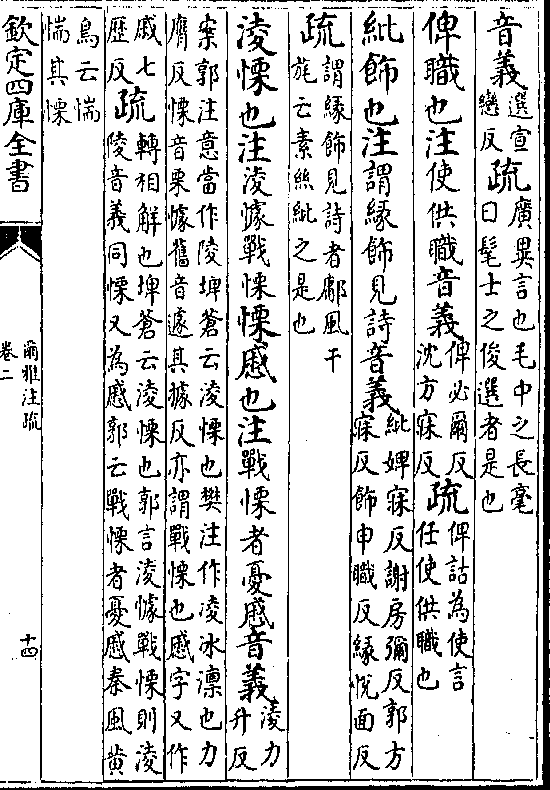 音義選宣
戀反疏廣異言也毛中之長毫
曰髦士之俊選者是也
俾職也注使供職音義俾必爾反
沈方寐反疏俾詁為使言
任使供職也
紕飾也注謂緣飾見詩音義紕婢寐反謝房彌反郭方
寐反飾申職反緣悅面反
疏謂緣飾見詩者鄘風干
旄云素絲紕之是也
淩慄也注淩懅戰慄慄慼也注戰慄者憂慼音義淩力
升反
案郭注意當作陵埤蒼云淩慄也樊注作凌冰凛也力
膺反慄音栗懅舊音遽其據反亦謂戰慄也慼字又作
戚七
歷反疏轉相解也埤蒼云淩慄也郭言淩懅戰慄則淩
陵音義同慄又為慼郭云戰慄者憂慼秦風黄
鳥云惴
惴其慄
欽定四庫全書
爾雅注疏
卷二
十四